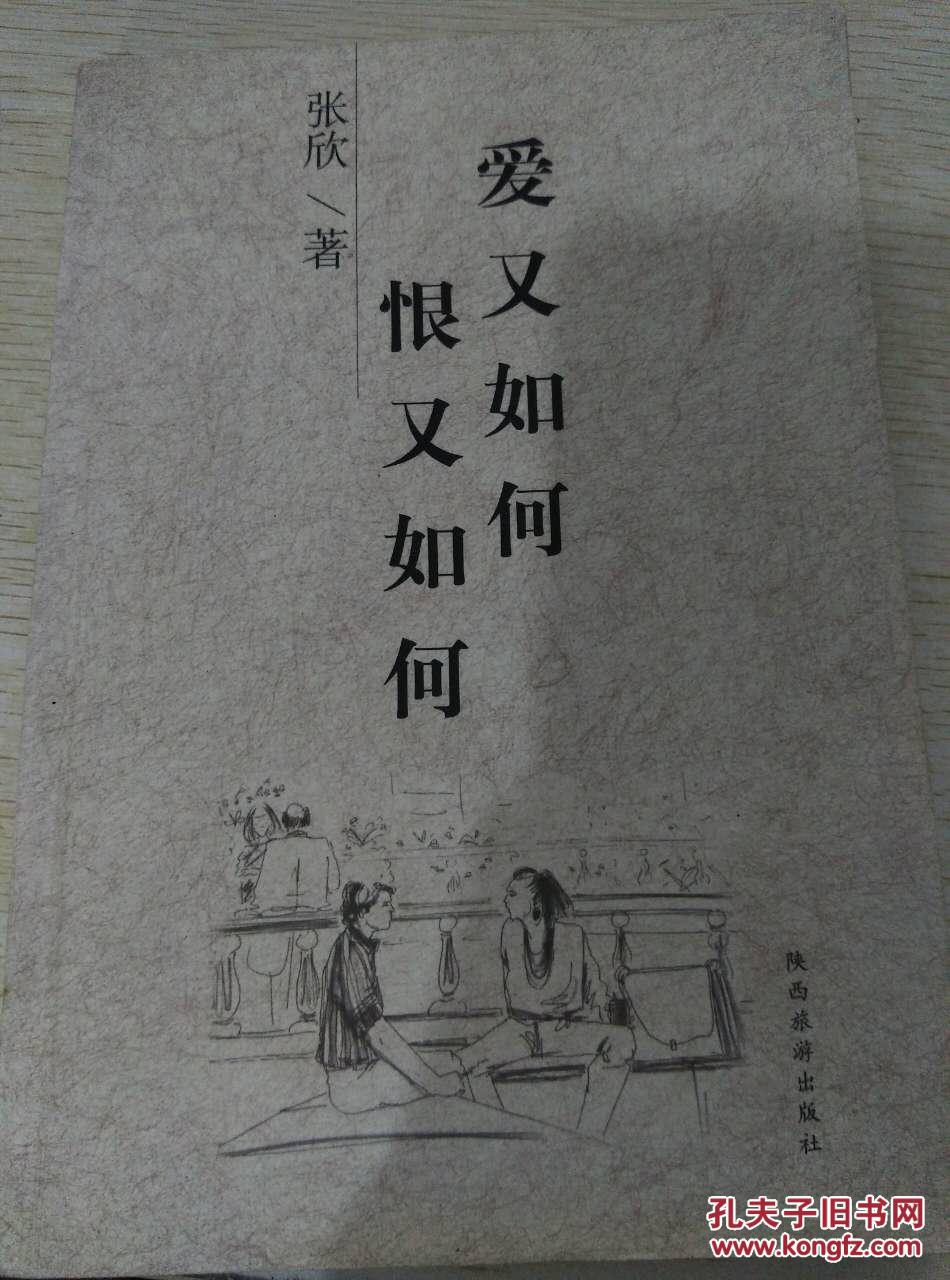 爱又如何
恨又如何
张欣/著
陕西旅游出版社
孔夫子旧书网
www.kongfz.com